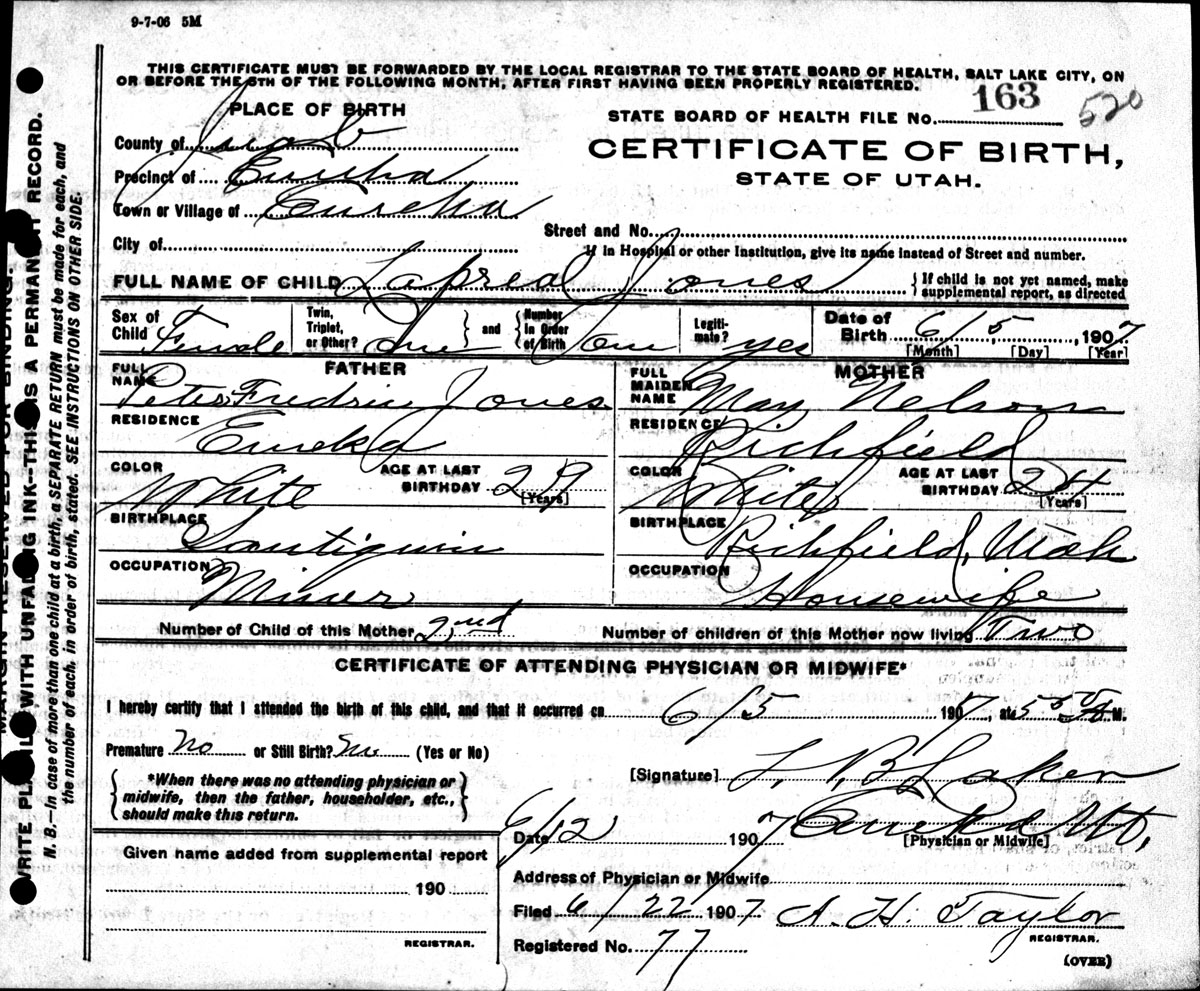 9-7-06 5M
THIS CERTIFICATE MUST BE FORWARDED BY THE LOCAL REGISTRAR TO THE STATE BOARD OF HEALTH, SALT LAKE CITY, ON
OR BEFORE THE 5TH OF THE FOLLOWING MONTH, AFTER FIRST HAVING BEEN PROPERLY REGISTERED.
PLACE OF BIRTH
County of Juab
Precinct of Eureka
Town or Village of Eureka
City of
STATE BOARD OF HEALTH FILE No. 163 520
CERTIFICATE OF BIRTH,
STATE OF UTAH.
Street and No.
If in Hospital or other Institution, give its name instead of Street and number.
FULL NAME OF CHILD Lapreal Jones
If child is not yet named, make
supplemental report, as directed
Sex of Child Female
Twin, Triplet, or Other? and Number in Order of Birth
Legitimate? yes
Date of Birth 6/5, 1907
[Month] [Day] [Year]
FATHER
FULL NAME Peter Fredric Jones
RESIDENCE Eureka
COLOR White AGE AT LAST BIRTHDAY 29 [Years]
BIRTHPLACE Santiquin
OCCUPATION Miner
MOTHER
FULL MAIDEN NAME May Nelson
RESIDENCE Richfield
COLOR White AGE AT LAST BIRTHDAY 24 [Years]
BIRTHPLACE Richfield, Utah
OCCUPATION Housewife
Number of Child of this Mother 2nd Number of children of this Mother now living Two
CERTIFICATE OF ATTENDING PHYSICIAN OR MIDWIFE*
I hereby certify that I attended the birth of this child, and that it occurred on 6/5 1907, at 5 A.M.
Premature No or Still Birth? No (Yes or No)
*When there was no attending physician or
midwife, then the father, householder, etc.,
should make this return.
[Signature]
Date 6/12 1907 Eureka Ut.
[Physician or Midwife]
Address of Physician or Midwife
Given name added from supplemental report
190
REGISTRAR.
Filed 6/22 1907 A. H. Taylor
REGISTRAR.
Registered No. 77
(OVER)
MARGIN RESERVED FOR BINDING.
WRITE PLAINLY WITH UNFADING INK--THIS IS A PERMANENT RECORD.
N. B.—In case of more than one child at a birth, a SEPARATE RETURN must be made for each, and
the number of each, in order of birth, stated. SEE INSTRUCTIONS ON OTHER SIDE.